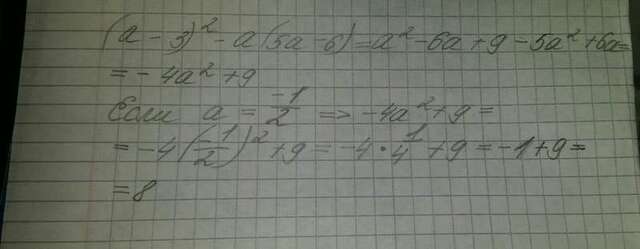 (a - 3)² - a(5a - 6) = a² - 6a + 9 - 5a² + 6a =
= - 4a² + 9
Если a = -1/2 => -4a² + 9 =
= -4(-1/2)² + 9 = -4 · 1/4 + 9 = -1 + 9 =
= 8